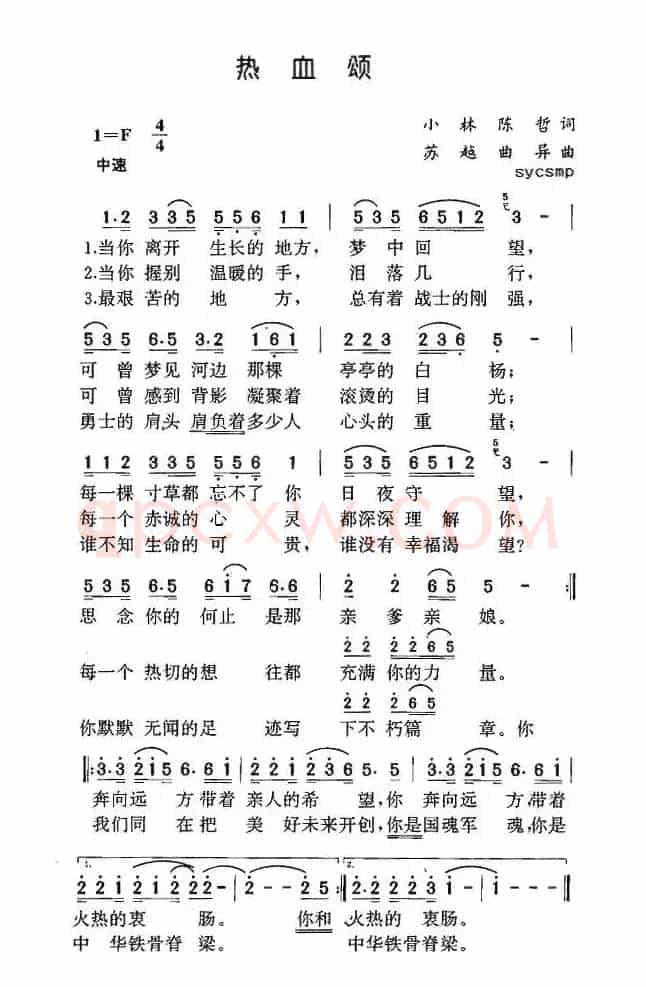 热血颂
1=F 4/4
中速
小林 陈哲词
苏越 曲异曲
sycsmp
1·2 335 556 11 | 535 6512 3 - |
1.当你 离开 生长的 地方, 梦中回 望,
2.当你 握别 温暖的 手, 泪落几 行,
3.最艰 苦的 地 方, 总有着 战士的刚 强,
535 6·5 3·2 161 | 223 236 5 - |
可曾 梦见 河边 那棵 亭亭的 白 杨;
可曾 感到 背影 凝聚着 滚烫的 目 光;
勇士的 肩头 肩负着多少人 心头的 重 量;
112 335 556 1 | 535 6512 3 - |
每一棵 寸草都 忘不了 你 日夜守 望,
每一个 赤诚的 心 灵 都深深 理解 你,
谁不知 生命的 可 贵, 谁没有 幸福渴 望?
qpcxw.COM
535 3·5 617 6·6 | 2 2 65 5 - :||
思念 你的 何止 是那 亲 爹 亲 娘。
2 2 2·2 65
每一个 热切的想 往都 充满 你的力 量。
2 2 2 65
你默默 无闻的足 迹写 下不 朽篇 章。你
||:3·3 215 6· 61 | 221 236 5· 5 | 3·3 215 6· 61 |
奔向远 方带着 亲人的希 望,你 奔向远 方,带着
我们同 在把 美 好未来开创,你是国魂军 魂,你是
1.
221 212 22- | 2 - - 25 :||
2.
2·2 223 1 - | 1 - - - ||
火热的衷 肠。 你和 火热的 衷 肠。
中 华铁骨脊 梁。 中华铁骨脊梁。